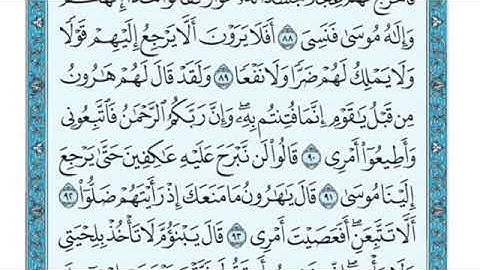 وَإِلَٰهُ مُوسَىٰ فَنَسِىَ ٨٨ أَفَلَا يَرَوْنَ أَلَّا يَرْجِعُ إِلَيْهِمْ قَوْلًا
وَلَا يَمْلِكُ لَهُمْ ضَرًّا وَلَا نَفْعًا ٨٩ وَلَقَدْ قَالَ لَهُمْ هَٰرُونُ
مِن قَبْلُ يَٰقَوْمِ إِنَّمَا فُتِنتُم بِهِۦ ۖ وَإِنَّ رَبَّكُمُ ٱلرَّحْمَٰنُ فَٱتَّبِعُونِى
وَأَطِيعُوٓا۟ أَمْرِى ٩٠ قَالُوا۟ لَن نَّبْرَحَ عَلَيْهِ عَٰكِفِينَ حَتَّىٰ يَرْجِعَ
إِلَيْنَا مُوسَىٰ ٩١ قَالَ يَٰهَٰرُونُ مَا مَنَعَكَ إِذْ رَأَيْتَهُمْ ضَلُّوٓا۟ ٩٢
أَلَّا تَتَّبِعَنِ ۖ أَفَعَصَيْتَ أَمْرِى ٩٣ قَالَ يَبْنَؤُمَّ لَا تَأْخُذْ بِلِحْيَتِى